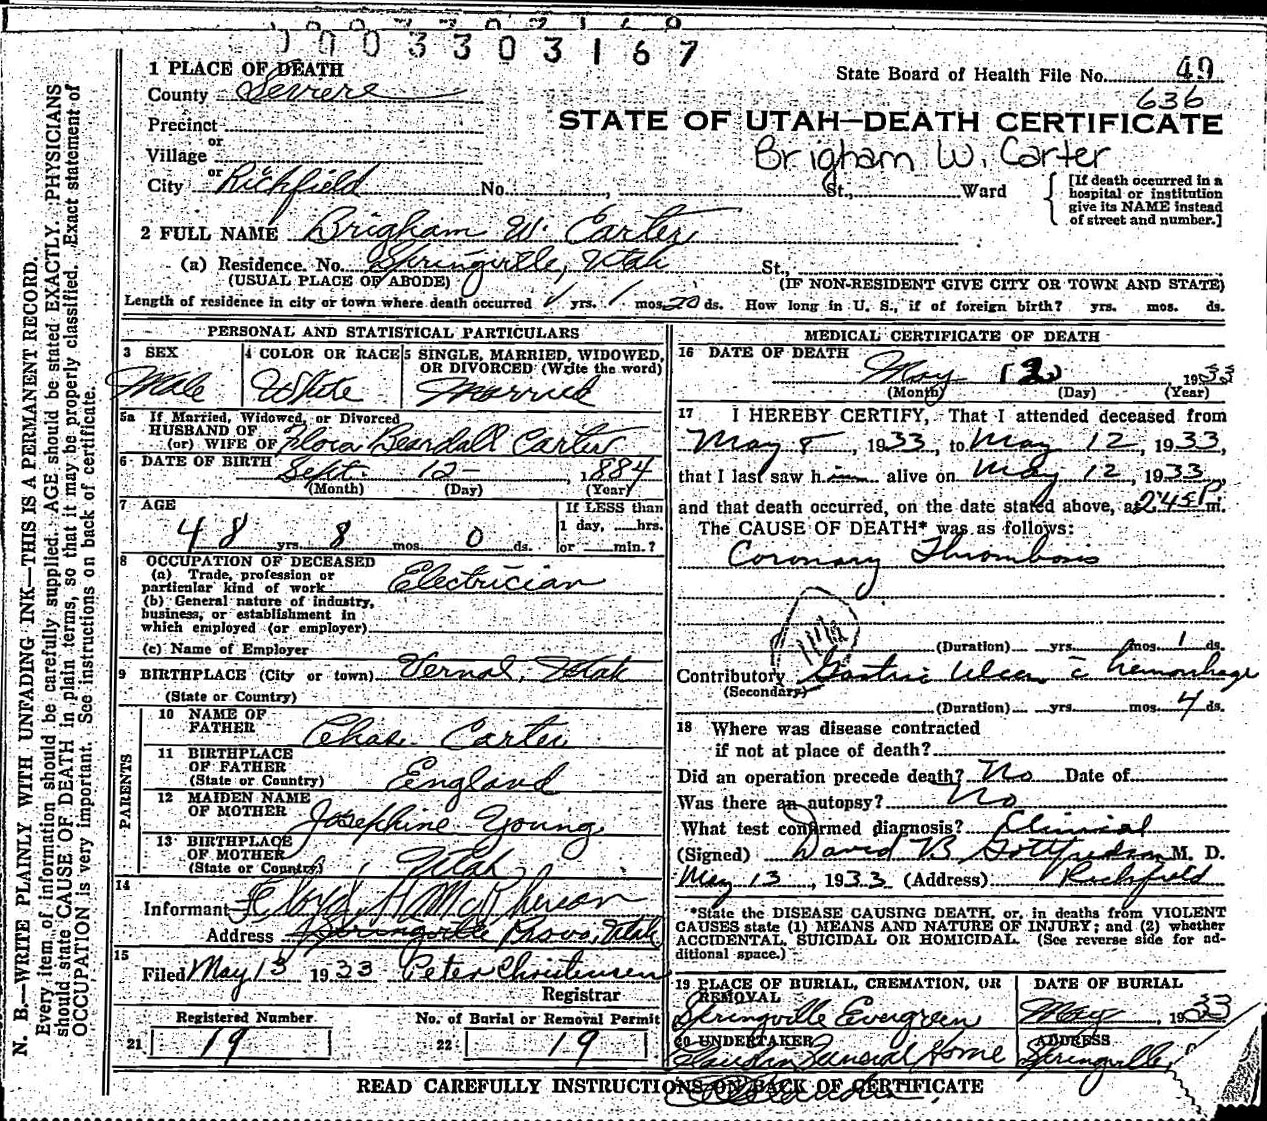 0003303167
1 PLACE OF DEATH
State Board of Health File No. 49
County Sevier
636
Precinct
STATE OF UTAH—DEATH CERTIFICATE
or
Village
Brigham W. Carter
or
City Richfield No. , St., Ward
[If death occurred in a hospital or institution give its NAME instead of street and number.]
2 FULL NAME Brigham W. Carter
(a) Residence. No. Springville, Utah St.,
(USUAL PLACE OF ABODE) (IF NON-RESIDENT GIVE CITY OR TOWN AND STATE)
Length of residence in city or town where death occurred yrs. 1 mos. 20 ds. How long in U. S., if of foreign birth? yrs. mos. ds.
N. B.—WRITE PLAINLY WITH UNFADING INK—THIS IS A PERMANENT RECORD.
Every item of information should be carefully supplied. AGE should be stated EXACTLY. PHYSICIANS
should state CAUSE OF DEATH in plain terms, so that it may be properly classified. Exact statement of
OCCUPATION is very important. See instructions on back of certificate.
PERSONAL AND STATISTICAL PARTICULARS
3 SEX
Male
4 COLOR OR RACE
White
5 SINGLE, MARRIED, WIDOWED,
OR DIVORCED (Write the word)
Married
5a If Married, Widowed, or Divorced
HUSBAND OF
(or) WIFE OF Flora Beardall Carter
6 DATE OF BIRTH Sept. 12 - , 1884
(Month) (Day) (Year)
7 AGE
48 yrs. 8 mos. 0 ds.
If LESS than
1 day, hrs.
or min.?
8 OCCUPATION OF DECEASED
(a) Trade, profession or
particular kind of work Electrician
(b) General nature of industry,
business, or establishment in
which employed (or employer)
(c) Name of Employer
9 BIRTHPLACE (City or town) Vernal, Utah
(State or Country)
PARENTS
10 NAME OF
FATHER Chas. Carter
11 BIRTHPLACE
OF FATHER
(State or Country) England
12 MAIDEN NAME
OF MOTHER Josephine Young
13 BIRTHPLACE
OF MOTHER
(State or Country) Utah
14
Informant Floyd H McPherson
Address Springville Provo, Utah
15
Filed May 13 1933 Peter Christensen
Registrar
Registered Number
21 19
No. of Burial or Removal Permit
22 19
MEDICAL CERTIFICATE OF DEATH
16 DATE OF DEATH
May 12 1933
(Month) (Day) (Year)
17 I HEREBY CERTIFY, That I attended deceased from
May 8, 1933, to May 12, 1933,
that I last saw him alive on May 12, 1933,
and that death occurred, on the date stated above, at 2:45 P. m.
The CAUSE OF DEATH* was as follows:
Coronary Thrombosis
(Duration) yrs. mos. 1 ds.
Contributory Gastric Ulcer c̄ hemorrhage
(Secondary)
(Duration) yrs. mos. 4 ds.
18 Where was disease contracted
if not at place of death?
Did an operation precede death? No Date of
Was there an autopsy? No
What test confirmed diagnosis? Clinical
(Signed) David B Gottfredson M. D.
May 13, 1933 (Address) Richfield
*State the DISEASE CAUSING DEATH, or, in deaths from VIOLENT
CAUSES state (1) MEANS AND NATURE OF INJURY; and (2) whether
ACCIDENTAL, SUICIDAL OR HOMICIDAL. (See reverse side for ad-
ditional space.)
19 PLACE OF BURIAL, CREMATION, OR
REMOVAL
Springville Evergreen
DATE OF BURIAL
May , 1933
20 UNDERTAKER
Claudin Funeral Home
ADDRESS
Springville,
READ CAREFULLY INSTRUCTIONS ON BACK OF CERTIFICATE